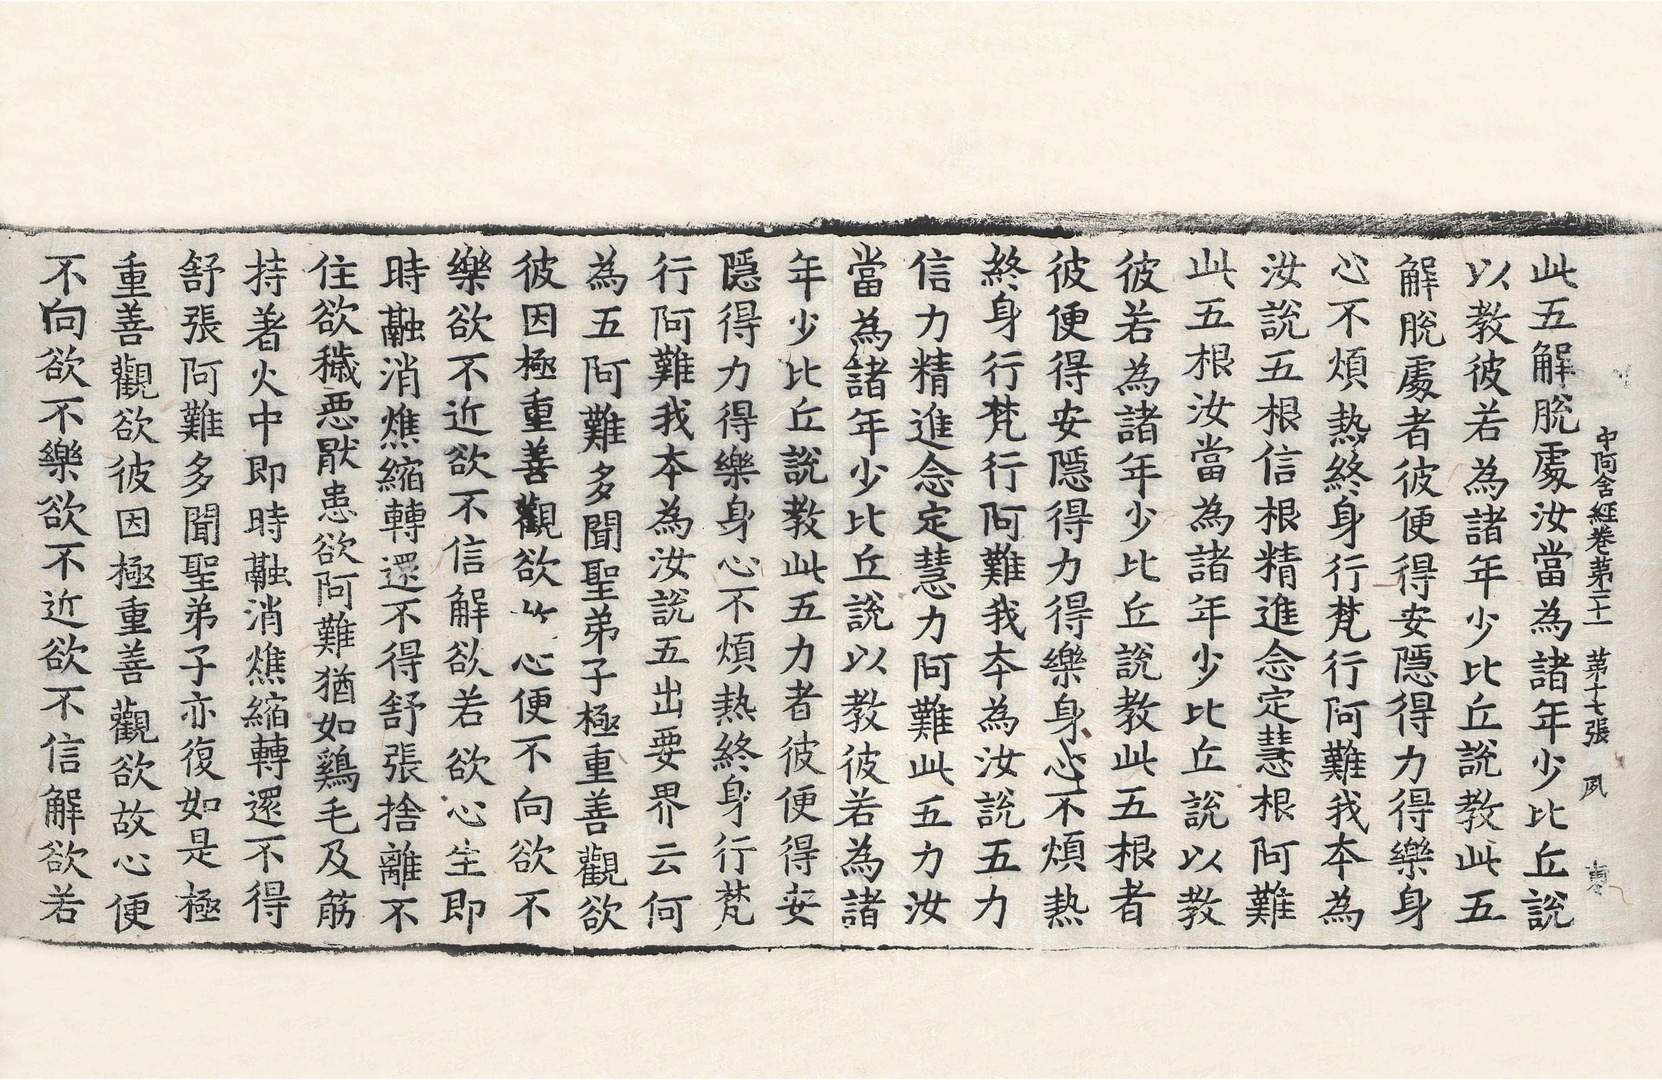 中阿含經卷第二十一 第十七張 夙
此五解脫處汝當為諸年少比丘說
以教彼若為諸年少比丘說教此五
解脫處者彼便得安隱得力得樂身
心不煩熱終身行梵行阿難我本為
汝說五根信根精進念定慧根阿難
此五根汝當為諸年少比丘說以教
彼若為諸年少比丘說教此五根者
彼便得安隱得力得樂身心不煩熱
終身行梵行阿難我本為汝說五力
信力精進念定慧力阿難此五力汝
當為諸年少比丘說以教彼若為諸
年少比丘說教此五力者彼便得安
隱得力得樂身心不煩熱終身行梵
行阿難我本為汝說五出要界云何
為五阿難多聞聖弟子極重善觀欲
彼因極重善觀欲心便不向欲不
樂欲不近欲不信解欲若欲心生即
時融消燋縮轉還不得舒張捨離不
住欲穢惡猒患欲阿難猶如鷄毛及筋
持著火中即時融消燋縮轉還不得
舒張阿難多聞聖弟子亦復如是極
重善觀欲彼因極重善觀欲故心便
不向欲不樂欲不近欲不信解欲若